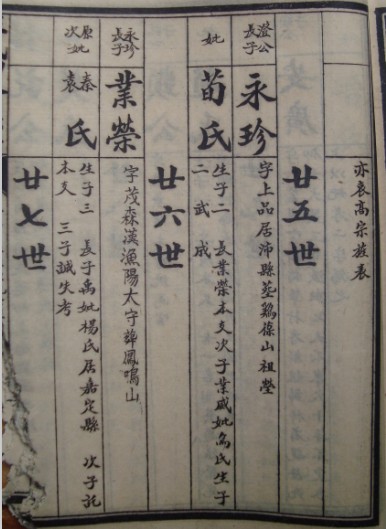 亦表高宗旌表
廿五世
澄公
長子
永珍
字上品居沛縣塟鷄葆山祖塋
妣
荀氏
生子二 長業榮本支次子業盛妣烏氏生子
二 武 成
廿六世
永珍
長子
業榮
字茂森漢漁陽太守葬鳳鳴山
原妣
次
秦
袁
氏
生子三 長子禹妣楊氏居嘉定縣 次子託
本支 三子誠失考
廿七世